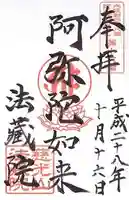 奉拝
平成二十八年
十月十六日
阿弥陀如来
法蔵院